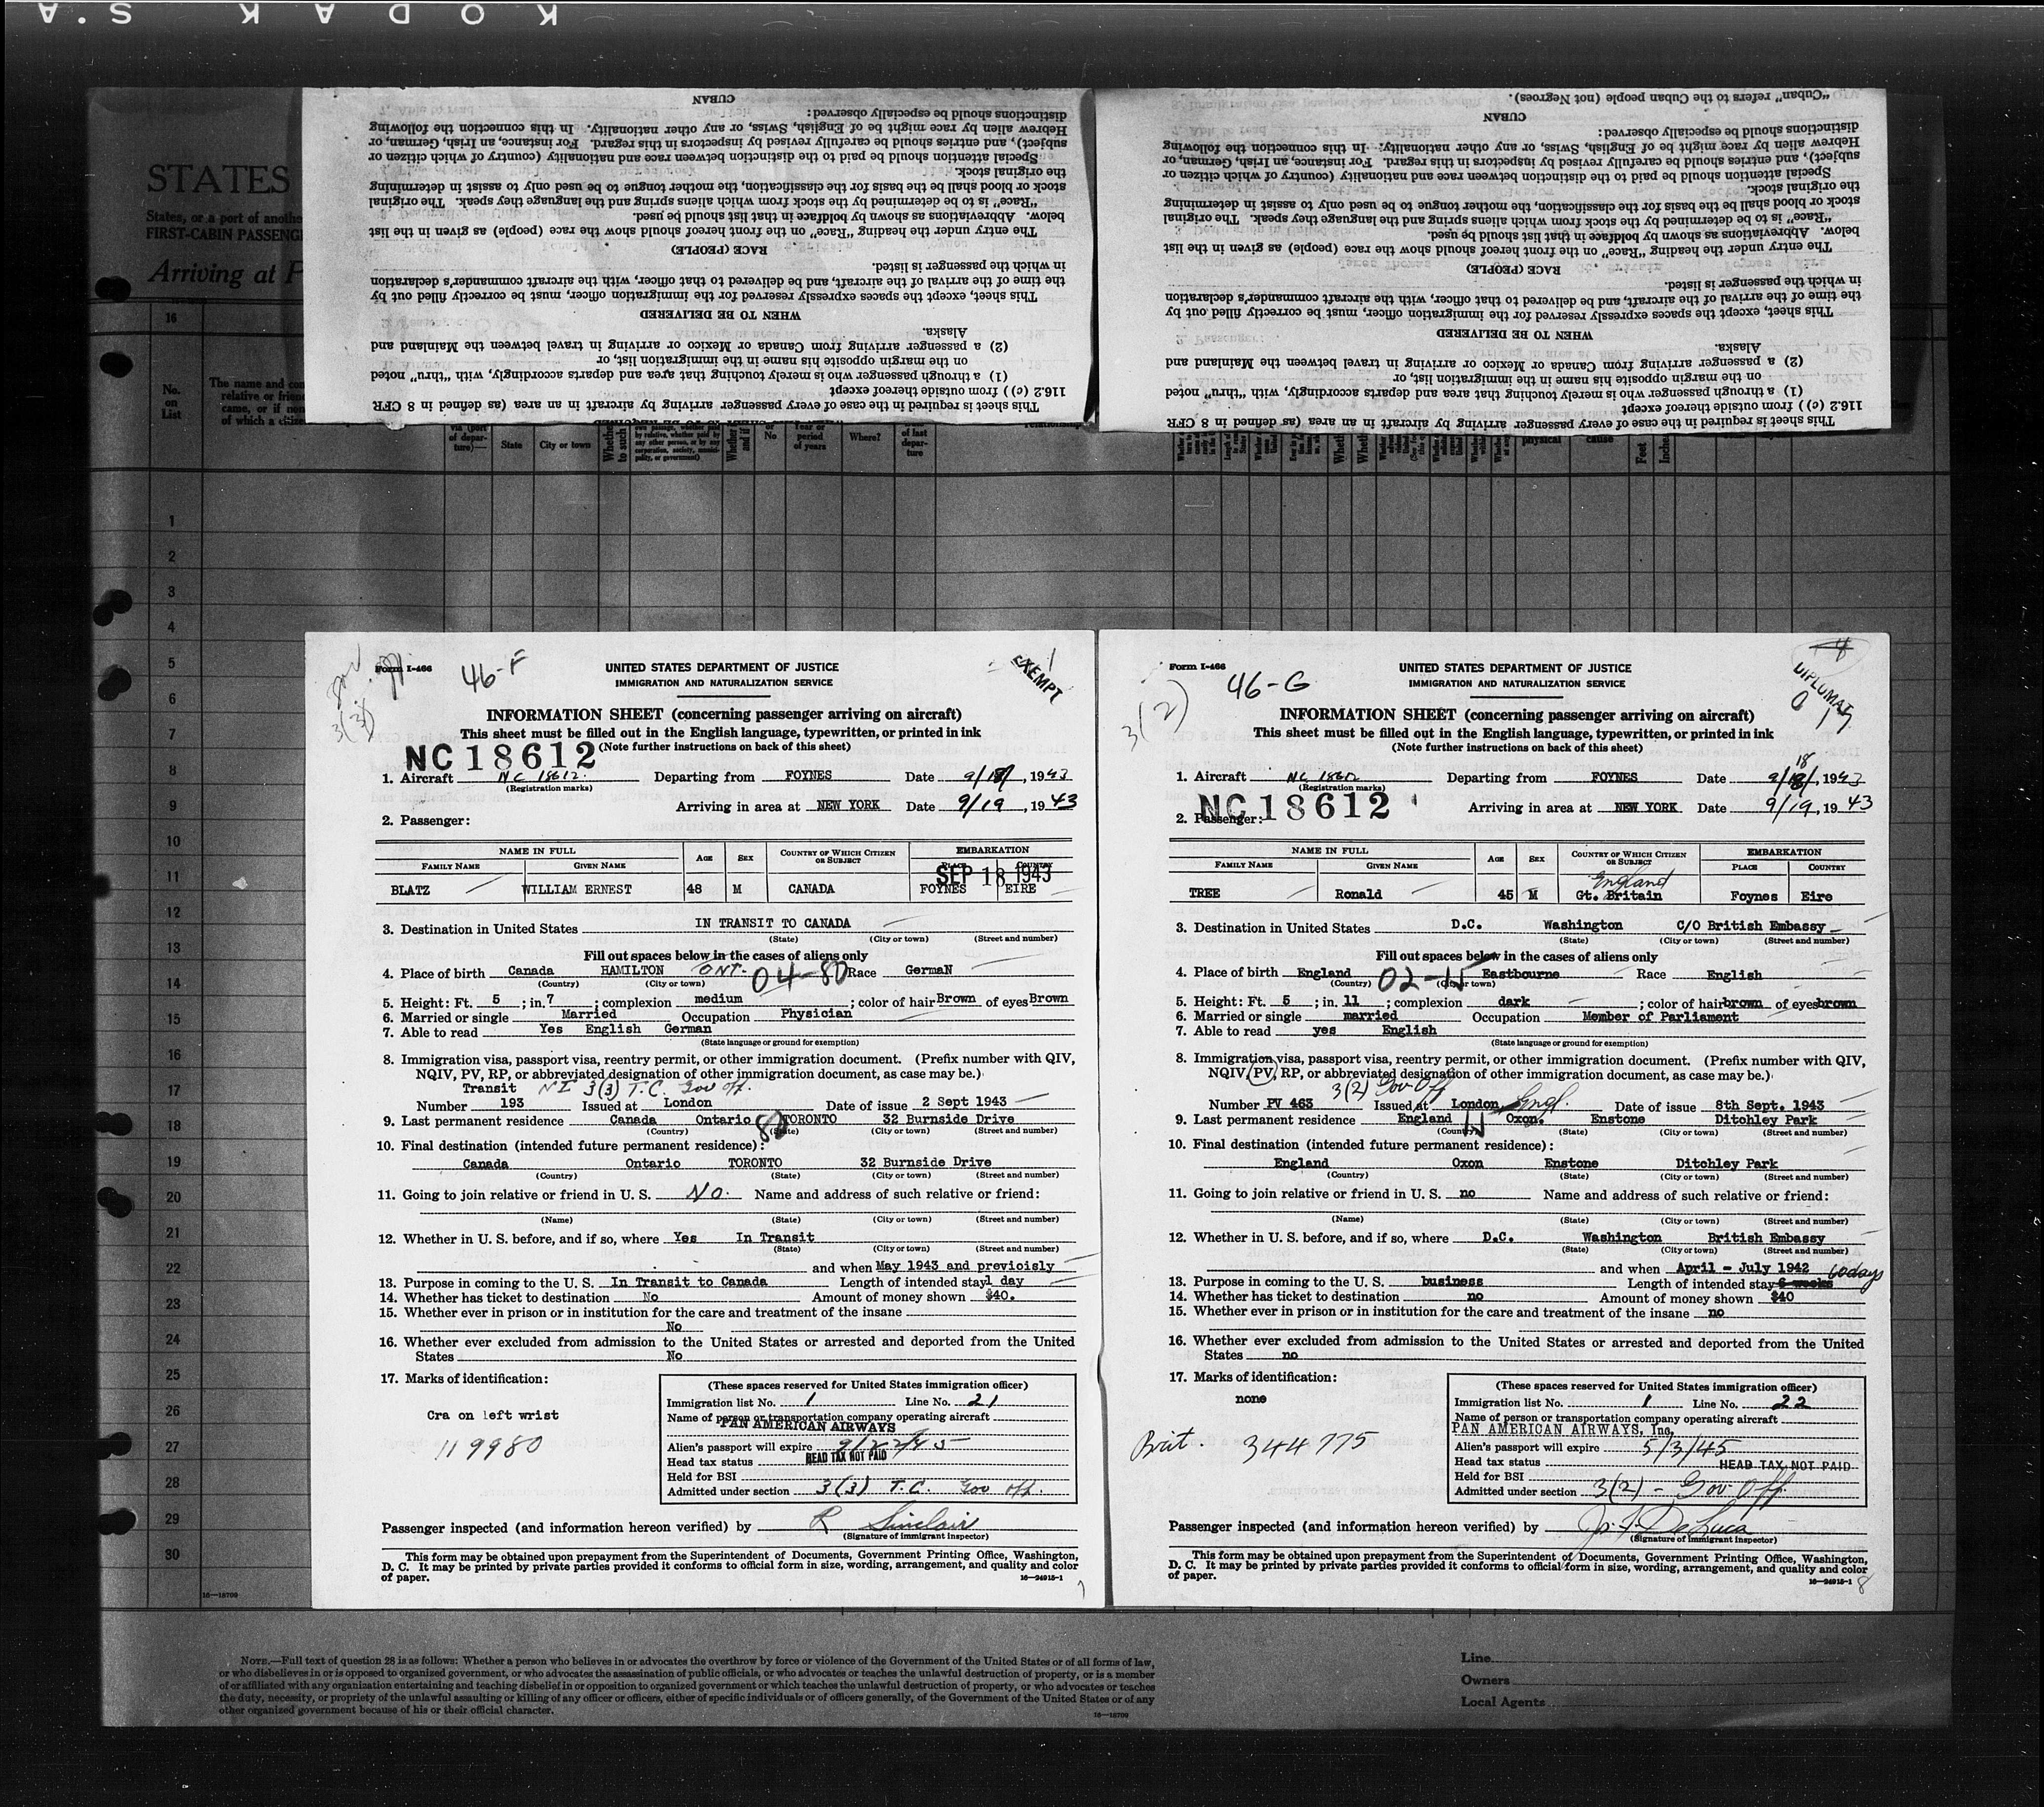 KODAK S.A
STATES
States, or a port of anothe
FIRST-CABIN PASSENG
Arriving at P
16
No.
on
List
The name and com
relative or frien
came, or if non
of which a citize
via (port
of depar-
ture)—
State
City or town
or
No
Year or
period
of years
Where?
of last
depar-
ture
physical
cause
Feet
1
2
3
4
5
6
7
8
9
10
11
12
13
14
15
16
17
18
19
20
21
22
23
24
25
26
27
28
29
30
16—18709
This sheet is required in the case of every passenger arriving by aircraft in an area (as defined in 8 CFR
116.2 (c)) from outside thereof except
(1) a through passenger who is merely touching that area and departs accordingly, with "thru" noted
on the margin opposite his name in the immigration list, or
(2) a passenger arriving from Canada or Mexico or arriving in travel between the Mainland and
Alaska.
WHEN TO BE DELIVERED
This sheet, except the spaces expressly reserved for the immigration officer, must be correctly filled out by
the time of the arrival of the aircraft, and be delivered to that officer, with the aircraft commander's declaration
in which the passenger is listed.
RACE (PEOPLE)
The entry under the heading "Race" on the front hereof should show the race (people) as given in the list
below. Abbreviations as shown by boldface in that list should be used.
"Race" is to be determined by the stock from which aliens spring and the language they speak. The original
stock or blood shall be the basis for the classification, the mother tongue to be used only to assist in determining
the original stock.
Special attention should be paid to the distinction between race and nationality (country of which citizen or
subject), and entries should be carefully revised by inspectors in this regard. For instance, an Irish, German, or
Hebrew alien by race might be of English, Swiss, or any other nationality. In this connection the following
distinctions should be especially observed:
CUBAN
This sheet is required in the case of every passenger arriving by aircraft in an area (as defined in 8 CFR
116.2 (c)) from outside thereof except
(1) a through passenger who is merely touching that area and departs accordingly, with "thru" noted
on the margin opposite his name in the immigration list, or
(2) a passenger arriving from Canada or Mexico or arriving in travel between the Mainland and
Alaska.
WHEN TO BE DELIVERED
This sheet, except the spaces expressly reserved for the immigration officer, must be correctly filled out by
the time of the arrival of the aircraft, and be delivered to that officer, with the aircraft commander's declaration
in which the passenger is listed.
RACE (PEOPLE)
The entry under the heading "Race" on the front hereof should show the race (people) as given in the list
below. Abbreviations as shown by boldface in that list should be used.
"Race" is to be determined by the stock from which aliens spring and the language they speak. The original
stock or blood shall be the basis for the classification, the mother tongue to be used only to assist in determining
the original stock.
Special attention should be paid to the distinction between race and nationality (country of which citizen or
subject), and entries should be carefully revised by inspectors in this regard. For instance, an Irish, German, or
Hebrew alien by race might be of English, Swiss, or any other nationality. In this connection the following
distinctions should be especially observed:
CUBAN
"Cuban" refers to the Cuban people (not Negroes).
Form I-466
46-F
3(3)
EXEMPT
UNITED STATES DEPARTMENT OF JUSTICE
IMMIGRATION AND NATURALIZATION SERVICE
INFORMATION SHEET (concerning passenger arriving on aircraft)
This sheet must be filled out in the English language, typewritten, or printed in ink
NC18612 (Note further instructions on back of this sheet)
1. Aircraft NC 18612. Departing from FOYNES Date 9/18/, 1943
(Registration marks)
Arriving in area at NEW YORK Date 9/19, 1943
2. Passenger:
NAME IN FULL AGE SEX COUNTRY OF WHICH CITIZEN OR SUBJECT EMBARKATION
FAMILY NAME GIVEN NAME PLACE COUNTRY
SEP 18 1943
BLATZ WILLIAM ERNEST 48 M CANADA FOYNES EIRE
3. Destination in United States IN TRANSIT TO CANADA
(State) (City or town) (Street and number)
Fill out spaces below in the cases of aliens only
4. Place of birth Canada HAMILTON ONT. 04-80 Race GermaN
(Country) (City or town)
5. Height: Ft. 5; in. 7; complexion medium; color of hair Brown of eyes Brown
6. Married or single Married Occupation Physician
7. Able to read Yes English German
(State language or ground for exemption)
8. Immigration visa, passport visa, reentry permit, or other immigration document. (Prefix number with QIV,
NQIV, PV, RP, or abbreviated designation of other immigration document, as case may be.)
Transit NI 3(3) T.C. Gov Off.
Number 193 Issued at London Date of issue 2 Sept 1943
9. Last permanent residence Canada Ontario 80 TORONTO 32 Burnside Drive
(Country) (State) (City or town) (Street and number)
10. Final destination (intended future permanent residence):
Canada Ontario TORONTO 32 Burnside Drive
(Country) (State) (City or town) (Street and number)
11. Going to join relative or friend in U. S. No. Name and address of such relative or friend:
(Name) (State) (City or town) (Street and number)
12. Whether in U. S. before, and if so, where Yes In Transit
(State) (City or town) (Street and number)
and when May 1943 and previoisly
13. Purpose in coming to the U. S. In Transit to Canada Length of intended stay 1 day
14. Whether has ticket to destination No Amount of money shown $40.
15. Whether ever in prison or in institution for the care and treatment of the insane
No
16. Whether ever excluded from admission to the United States or arrested and deported from the United
States No
17. Marks of identification:
Cra on left wrist
119980
(These spaces reserved for United States immigration officer)
Immigration list No. 1 Line No. 21
Name of person or transportation company operating aircraft
PAN AMERICAN AIRWAYS
Alien's passport will expire 9/22/45
Head tax status HEAD TAX NOT PAID
Held for BSI
Admitted under section 3(3) T.C. Gov Off.
Passenger inspected (and information hereon verified) by R Sinclair
(Signature of immigrant inspector)
This form may be obtained upon prepayment from the Superintendent of Documents, Government Printing Office, Washington,
D. C. It may be printed by private parties provided it conforms to official form in size, wording, arrangement, and quality and color
of paper.
16—24915-1
7
Form I-466
46-G
3(2)
DIPLOMAT
UNITED STATES DEPARTMENT OF JUSTICE
IMMIGRATION AND NATURALIZATION SERVICE
INFORMATION SHEET (concerning passenger arriving on aircraft)
This sheet must be filled out in the English language, typewritten, or printed in ink
(Note further instructions on back of this sheet)
18
1. Aircraft NC 18612 Departing from FOYNES Date 9/18/, 1943
(Registration marks)
NC18612
Arriving in area at NEW YORK Date 9/19, 1943
2. Passenger:
NAME IN FULL AGE SEX COUNTRY OF WHICH CITIZEN OR SUBJECT EMBARKATION
FAMILY NAME GIVEN NAME PLACE COUNTRY
England
TREE Ronald 45 M Gt. Britain Foynes Eire
3. Destination in United States D.C. Washington C/O British Embassy
(State) (City or town) (Street and number)
Fill out spaces below in the cases of aliens only
4. Place of birth England 02-15 Eastbourne Race English
(Country) (City or town)
5. Height: Ft. 5; in. 11; complexion dark; color of hair brown of eyes brown
6. Married or single married Occupation Member of Parliament
7. Able to read yes English
(State language or ground for exemption)
8. Immigration visa, passport visa, reentry permit, or other immigration document. (Prefix number with QIV,
NQIV, PV, RP, or abbreviated designation of other immigration document, as case may be.)
3(2) Gov Off
Number PV 463 Issued at London Engl. Date of issue 8th Sept. 1943
9. Last permanent residence England Oxon. Enstone Ditchley Park
(Country) (State) (City or town) (Street and number)
10. Final destination (intended future permanent residence):
England Oxon Enstone Ditchley Park
(Country) (State) (City or town) (Street and number)
11. Going to join relative or friend in U. S. no Name and address of such relative or friend:
(Name) (State) (City or town) (Street and number)
12. Whether in U. S. before, and if so, where D.C. Washington British Embassy
(State) (City or town) (Street and number)
and when April - July 1942
13. Purpose in coming to the U. S. business Length of intended stay 6 weeks 60 days
14. Whether has ticket to destination no Amount of money shown $40
15. Whether ever in prison or in institution for the care and treatment of the insane no
16. Whether ever excluded from admission to the United States or arrested and deported from the United
States no
17. Marks of identification:
none
Brit. 344775
(These spaces reserved for United States immigration officer)
Immigration list No. 1 Line No. 22
Name of person or transportation company operating aircraft
PAN AMERICAN AIRWAYS, Inc.
Alien's passport will expire 5/3/45
Head tax status HEAD TAX NOT PAID
Held for BSI
Admitted under section 3(2) - Gov. Off.
Passenger inspected (and information hereon verified) by Jo. F. DeLuca
(Signature of immigrant inspector)
This form may be obtained upon prepayment from the Superintendent of Documents, Government Printing Office, Washington,
D. C. It may be printed by private parties provided it conforms to official form in size, wording, arrangement, and quality and color
of paper.
16—24915-1
8
NOTE.—Full text of question 28 is as follows: Whether a person who believes in or advocates the overthrow by force or violence of the Government of the United States or of all forms of law,
or who disbelieves in or is opposed to organized government, or who advocates the assassination of public officials, or who advocates or teaches the unlawful destruction of property, or is a member
of or affiliated with any organization entertaining and teaching disbelief in or opposition to organized government or which teaches the unlawful destruction of property, or who advocates or teaches
the duty, necessity, or propriety of the unlawful assaulting or killing of any officer or officers, either of specific individuals or of officers generally, of the Government of the United States or of any
other organized government because of his or their official character.
16—18709
Line
Owners
Local Agents